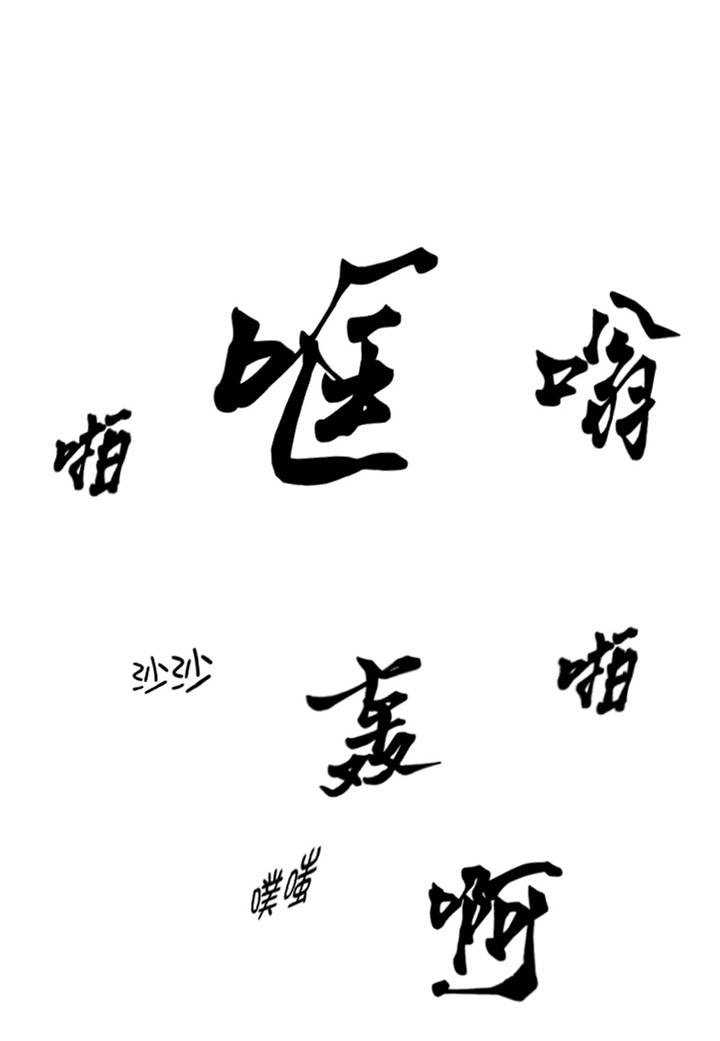 哐
嗡
啪
沙沙
轰
啪
噗嗤
啊